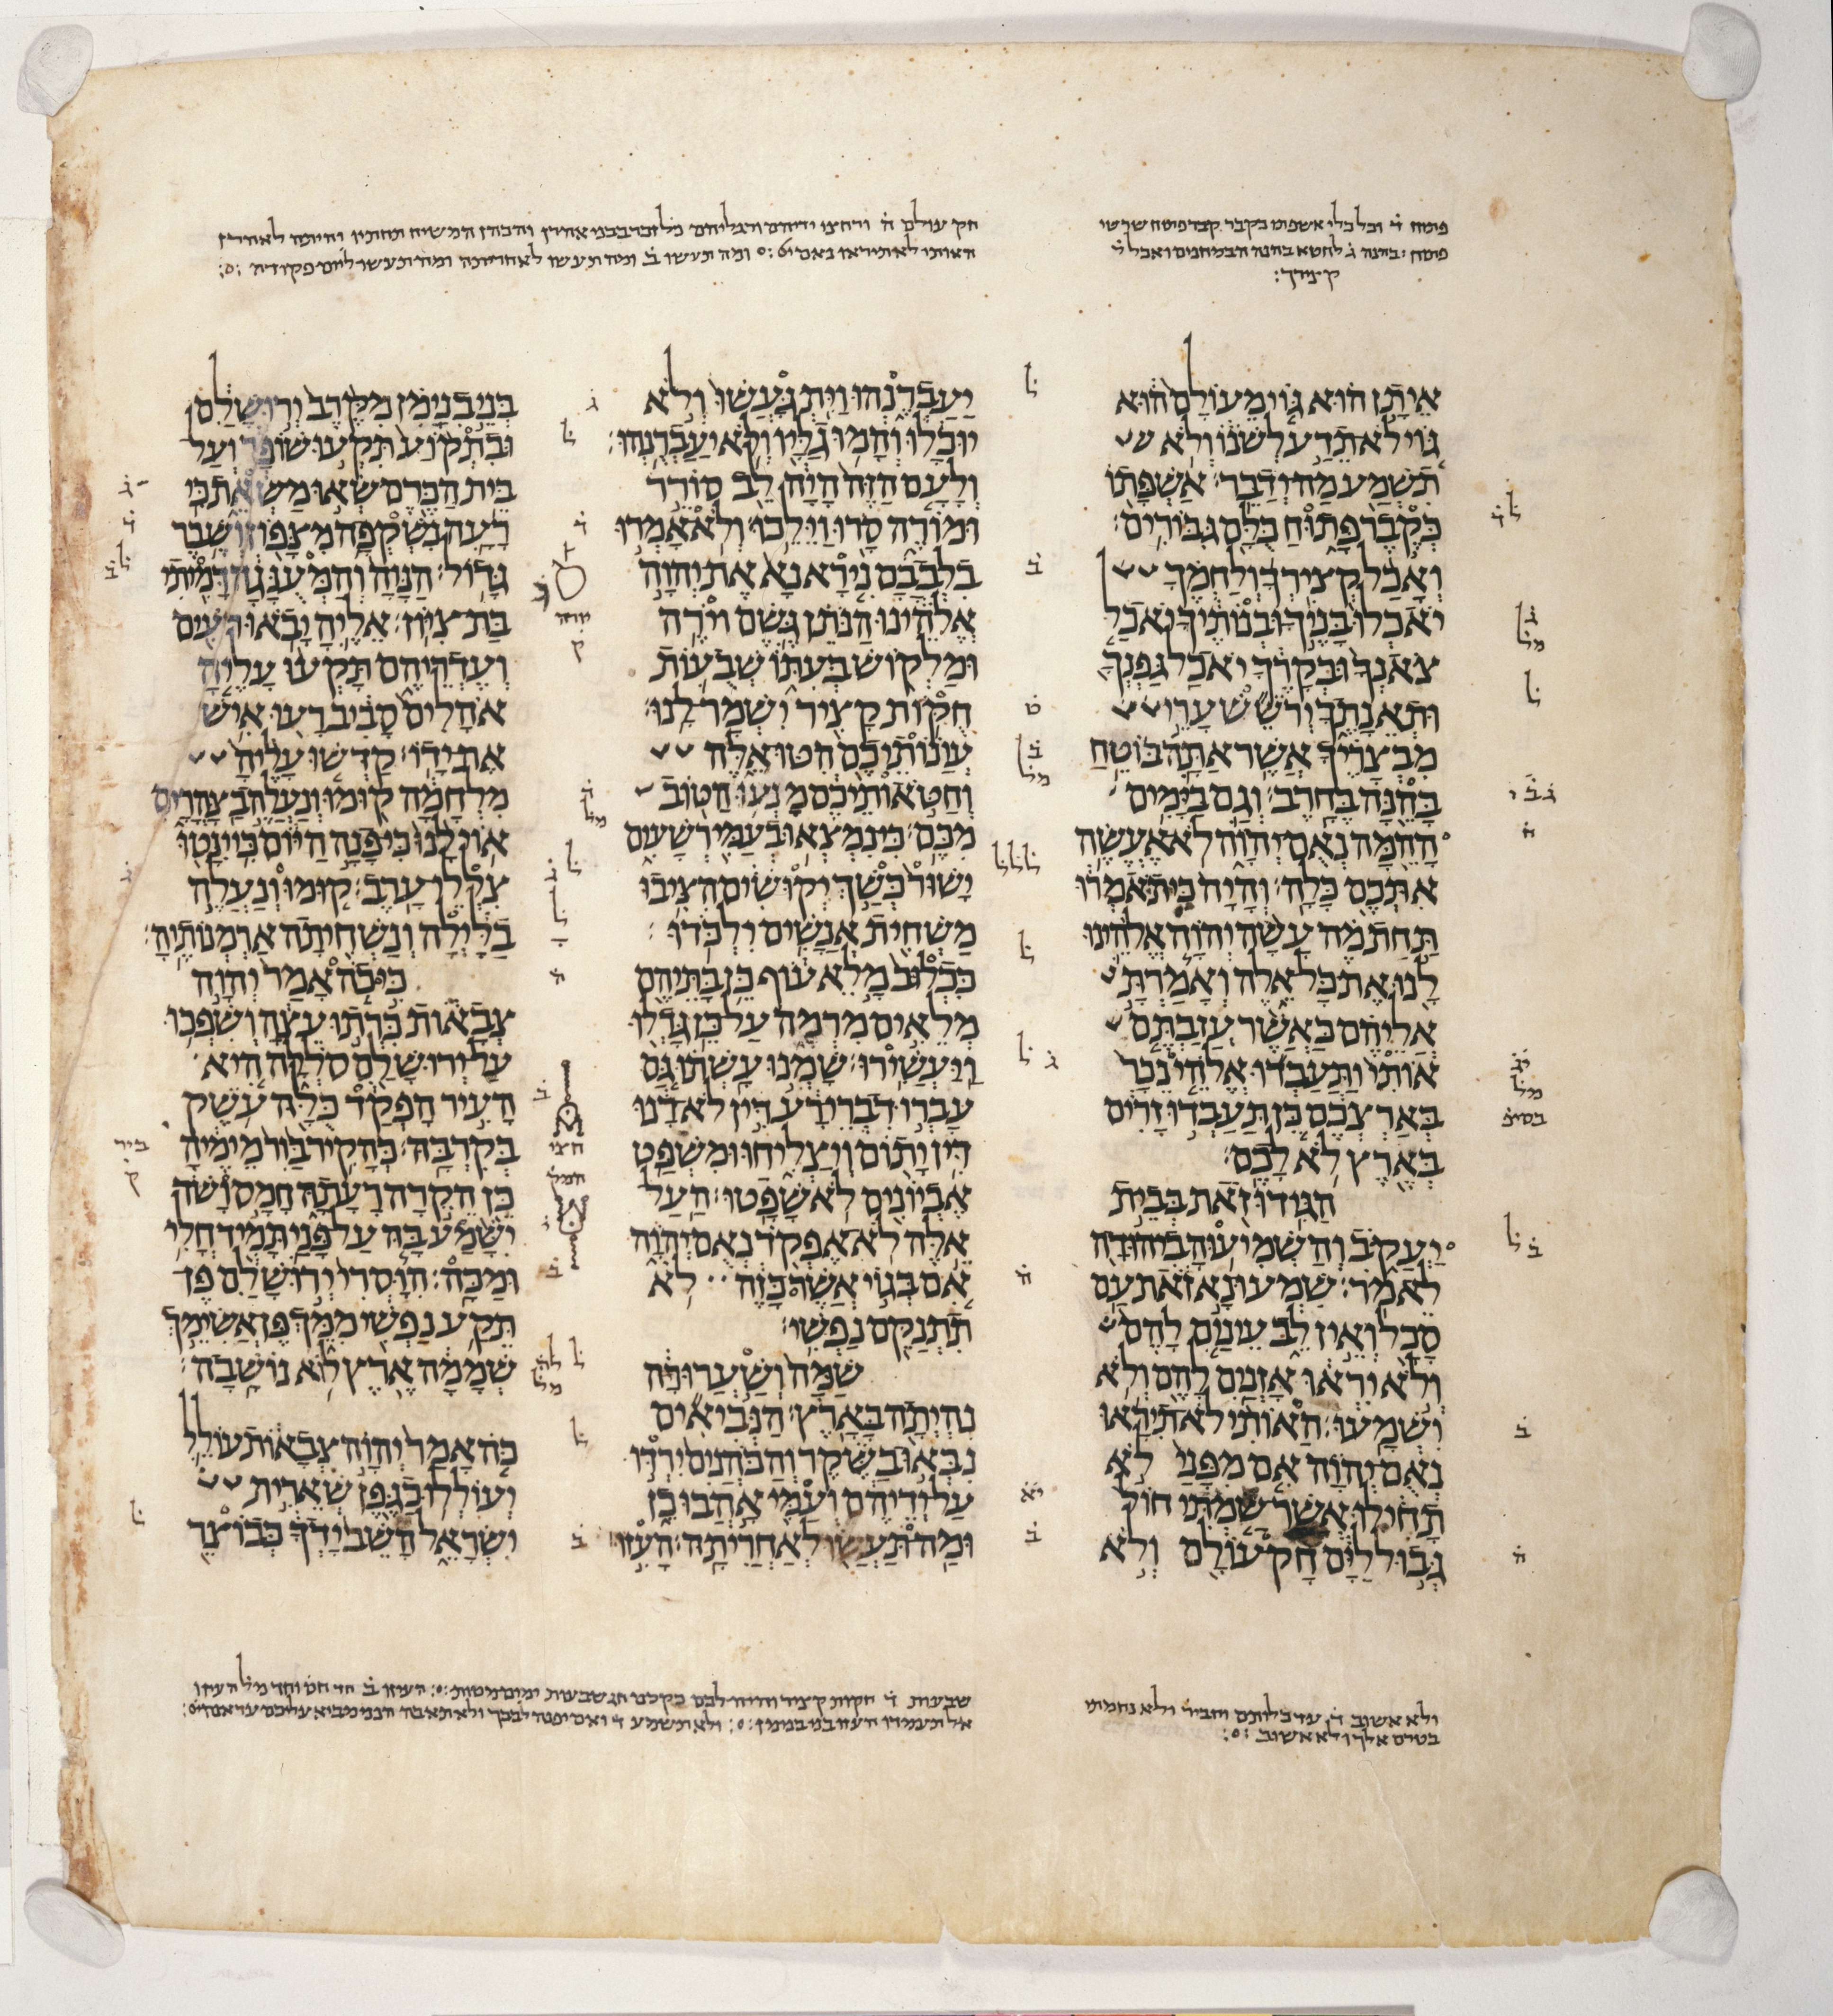 פתוח ד֗ וכל כלי אשפתו כקבר קבר פתוח שרשי
פתוח
ק צירך:
חק עולם ה֗ ורחצו ידיהם ורגליהם כל זכר בבני אהרן והכהן המשיח תחתיו והיתה לאהרן
האותי לא תיראו נאם יי׳ :٥: ומה תעשו ב֗ ומה תעשו לאחריתה ומה תעשו ליום פקודה :٥:
אֵיתָן הוּא גּוֹי מֵעוֹלָם הוּא
גּוֹי לֹא תֵדַע לְשֹׁנוֹ וְלֹא
תִשְׁמַע מַה יְדַבֵּר׃ אַשְׁפָּתוֹ
כְּקֶבֶר פָּתוּחַ כֻּלָּם גִּבּוֹרִים׃
וְאָכַל קְצִירְךָ וְלַחְמֶךָ
יֹאכְלוּ בָּנֶיךָ וּבְנוֹתֶיךָ יֹאכַל
צֹאנְךָ וּבְקָרֶךָ יֹאכַל גַּפְנְךָ
וּתְאֵנָתֶךָ יְרֹשֵׁשׁ עָרֵי
מִבְצָרֶיךָ אֲשֶׁר אַתָּה בּוֹטֵחַ
בָּהֵנָּה בֶּחָרֶב׃ וְגַם בַּיָּמִים
הָהֵמָּה נְאֻם יְהוָה לֹא אֶעֱשֶׂה
אִתְּכֶם כָּלָה׃ וְהָיָה כִּי תֹאמְרוּ
תַּחַת מֶה עָשָׂה יְהוָה אֱלֹהֵינוּ
לָנוּ אֶת כָּל אֵלֶּה וְאָמַרְתָּ
אֲלֵיהֶם כַּאֲשֶׁר עֲזַבְתֶּם
אוֹתִי וַתַּעַבְדוּ אֱלֹהֵי נֵכָר
בְּאַרְצְכֶם כֵּן תַּעַבְדוּ זָרִים
בְּאֶרֶץ לֹא לָכֶם׃
הַגִּידוּ זֹאת בְּבֵית
יַעֲקֹב וְהַשְׁמִיעוּהָ בִיהוּדָה
לֵאמֹר׃ שִׁמְעוּ נָא זֹאת עַם
סָכָל וְאֵין לֵב עֵינַיִם לָהֶם
וְלֹא יִרְאוּ אָזְנַיִם לָהֶם וְלֹא
יִשְׁמָעוּ׃ הַאוֹתִי לֹא תִירָאוּ
נְאֻם יְהוָה אִם מִפָּנַי לֹא
תָחִילוּ אֲשֶׁר שַׂמְתִּי חוֹל
גְּבוּל לַיָּם חָק עוֹלָם וְלֹא
יַעַבְרֶנְהוּ וַיִּתְגָּעֲשׁוּ וְלֹא
יוּכָלוּ וְהָמוּ גַלָּיו וְלֹא יַעַבְרֻנְהוּ׃
וְלָעָם הַזֶּה הָיָה לֵב סוֹרֵר
וּמוֹרֶה סָרוּ וַיֵּלֵכוּ׃ וְלֹא אָמְרוּ
בִלְבָבָם נִירָא נָא אֶת יְהוָה
אֱלֹהֵינוּ הַנֹּתֵן גֶּשֶׁם וירֶה
וּמַלְקוֹשׁ בְּעִתּוֹ שְׁבֻעוֹת
חֻקּוֹת קָצִיר יִשְׁמָר לָנוּ׃
עֲוֺנוֹתֵיכֶם הִטּוּ אֵלֶּה
וְחַטֹּאותֵיכֶם מָנְעוּ הַטּוֹב
מִכֶּם׃ כִּי נִמְצְאוּ בְעַמִּי רְשָׁעִים
יָשׁוּר כְּשַׁךְ יְקוּשִׁים הִצִּיבוּ
מַשְׁחִית אֲנָשִׁים יִלְכֹּדוּ׃
כִּכְלוּב מָלֵא עוֹף כֵּן בָּתֵּיהֶם
מְלֵאִים מִרְמָה עַל כֵּן גָּדְלוּ
וַיַּעֲשִׁירוּ׃ שָׁמְנוּ עָשְׁתוּ גַּם
עָבְרוּ דִבְרֵי רָע דִּין לֹא דָנוּ
דִּין יָתוֹם וְיַצְלִיחוּ וּמִשְׁפַּט
אֶבְיוֹנִים לֹא שָׁפָטוּ׃ הַעַל
אֵלֶּה לֹא אֶפְקֹד נְאֻם יְהוָה
אִם בְּגוֹי אֲשֶׁר כָּזֶה לֹא
תִתְנַקֵּם נַפְשִׁי׃
שַׁמָּה וְשַׁעֲרוּרָה
נִהְיְתָה בָּאָרֶץ׃ הַנְּבִיאִים
נִבְּאוּ בַשֶּׁקֶר וְהַכֹּהֲנִים יִרְדּוּ
עַל יְדֵיהֶם וְעַמִּי אָהֲבוּ כֵן
וּמַה תַּעֲשׂוּ לְאַחֲרִיתָהּ׃ הָעִזוּ
בְּנֵי בִנְיָמִן מִקֶּרֶב יְרוּשָׁלִַם
וּבִתְקוֹעַ תִּקְעוּ שׁוֹפָר וְעַל
בֵּית הַכֶּרֶם שְׂאוּ מַשְׂאֵת כִּי
רָעָה נִשְׁקְפָה מִצָּפוֹן וְשֶׁבֶר
גָּדוֹל׃ הַנָּוָה וְהַמְּעֻנָּגָה דָּמִיתִי
בַּת צִיּוֹן׃ אֵלֶיהָ יָבֹאוּ רֹעִים
וְעֶדְרֵיהֶם תָּקְעוּ עָלֶיהָ
אֹהָלִים סָבִיב רָעוּ אִישׁ
אֶת יָדוֹ׃ קַדְּשׁוּ עָלֶיהָ
מִלְחָמָה קוּמוּ וְנַעֲלֶה בַצָּהֳרָיִם
אוֹי לָנוּ כִּי פָנָה הַיּוֹם כִּי יִנָּטוּ
צִלְלֵי עָרֶב׃ קוּמוּ וְנַעֲלֶה
בַלָּיְלָה וְנַשְׁחִיתָה אַרְמְנוֹתֶיהָ׃
כִּי כֹה אָמַר יְהוָה
צְבָאוֹת כִּרְתוּ עֵצָה וְשִׁפְכוּ
עַל יְרוּשָׁלִַם סֹלְלָה הִיא
הָעִיר הָפְקַד כֻּלָּהּ עֹשֶׁק
בְּקִרְבָּהּ׃ כְּהָקִיר בַּוִר מֵימֶיהָ
כֵּן הֵקֵרָה רָעָתָהּ חָמָס וָשֹׁד
יִשָּׁמַע בָּהּ עַל פָּנַי תָּמִיד חֳלִי
וּמַכָּה׃ הִוָּסְרִי יְרוּשָׁלִַם פֶּן
תֵּקַע נַפְשִׁי מִמֵּךְ פֶּן אֲשִׂימֵךְ
שְׁמָמָה אֶרֶץ לוֹא נוֹשָׁבָה׃
כֹּה אָמַר יְהוָה צְבָאוֹת עוֹלֵל
יְעוֹלְלוּ כַגֶּפֶן שְׁאֵרִית
יִשְׂרָאֵל הָשֵׁב יָדְךָ כְּבוֹצֵר
ולא אשוב ד֗ עד כלותם וחביר ולא נחמתי
בטרם אלך ולא אשוב :٥:
שבעות ד֗ חקות קציר והיה לכם חג שבעות ימים מצות :٥: העיזו ב֗ חד חס וחד מל העיזו
אל תעמדו העזו בני בנימן :٥: ולא תשמע ד֗ ואם יפנה לבבך ולא תאבה הנני מביא עליכם